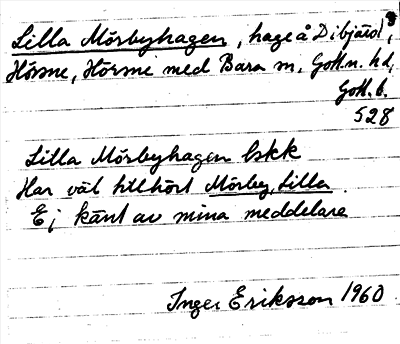 Lilla Mörbyhagen, hage å Dibjärs,
Hörsne, Hörsne med Bara sn, Gotl.n. hd,
Gotl. l.
528
Lilla Mörbyhagen bskk
Har väl tillhört Mörby, Lilla.
Ej känt av mina meddelare
Inger Eriksson 1960